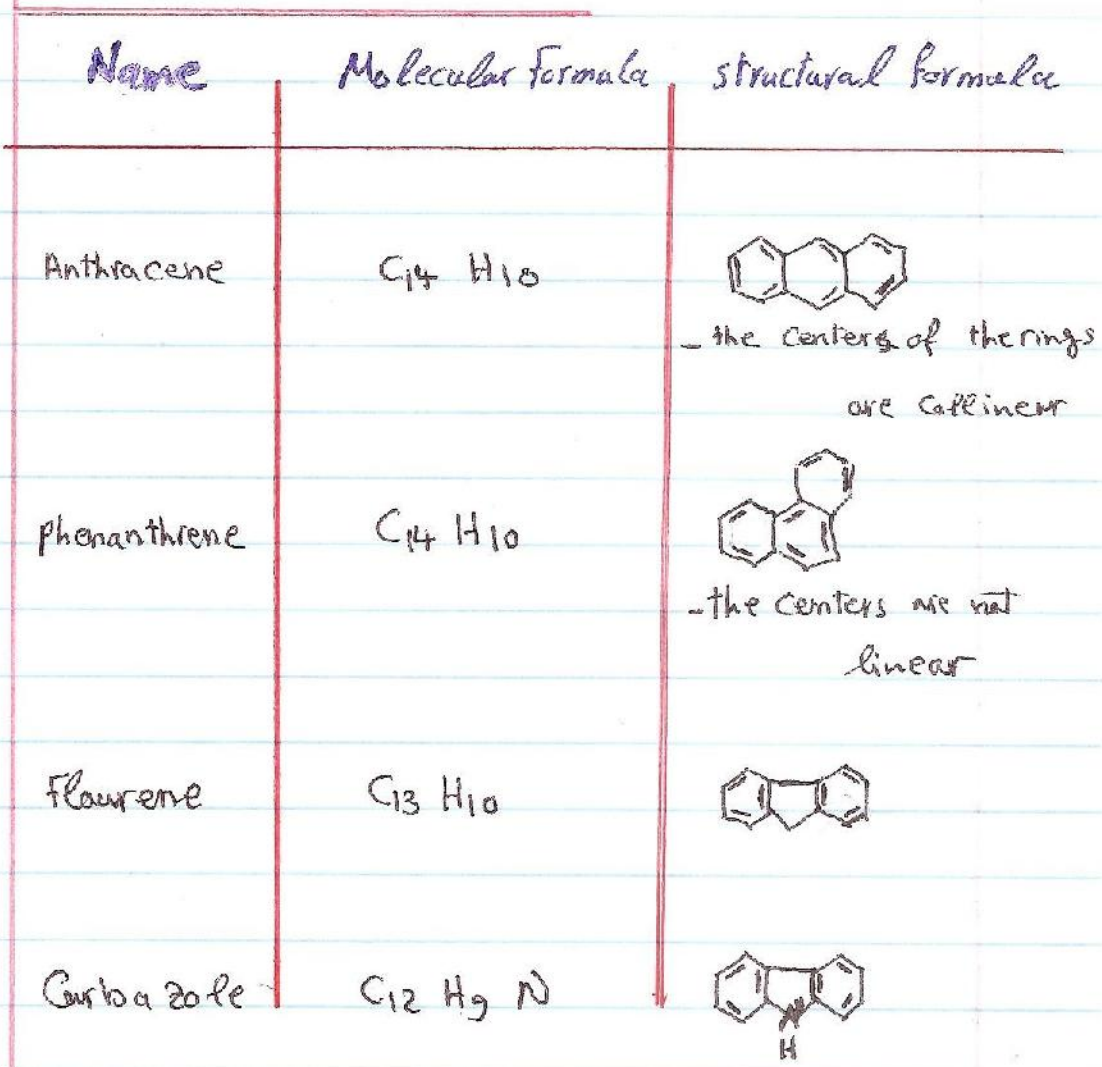 Name Molecular formula structural formula
Anthracene C14 H10
- the centers of the rings
are collinear
phenanthrene C14 H10
- the centers are not
linear
flaurene C13 H10
Carbazole C12 H9 N
H